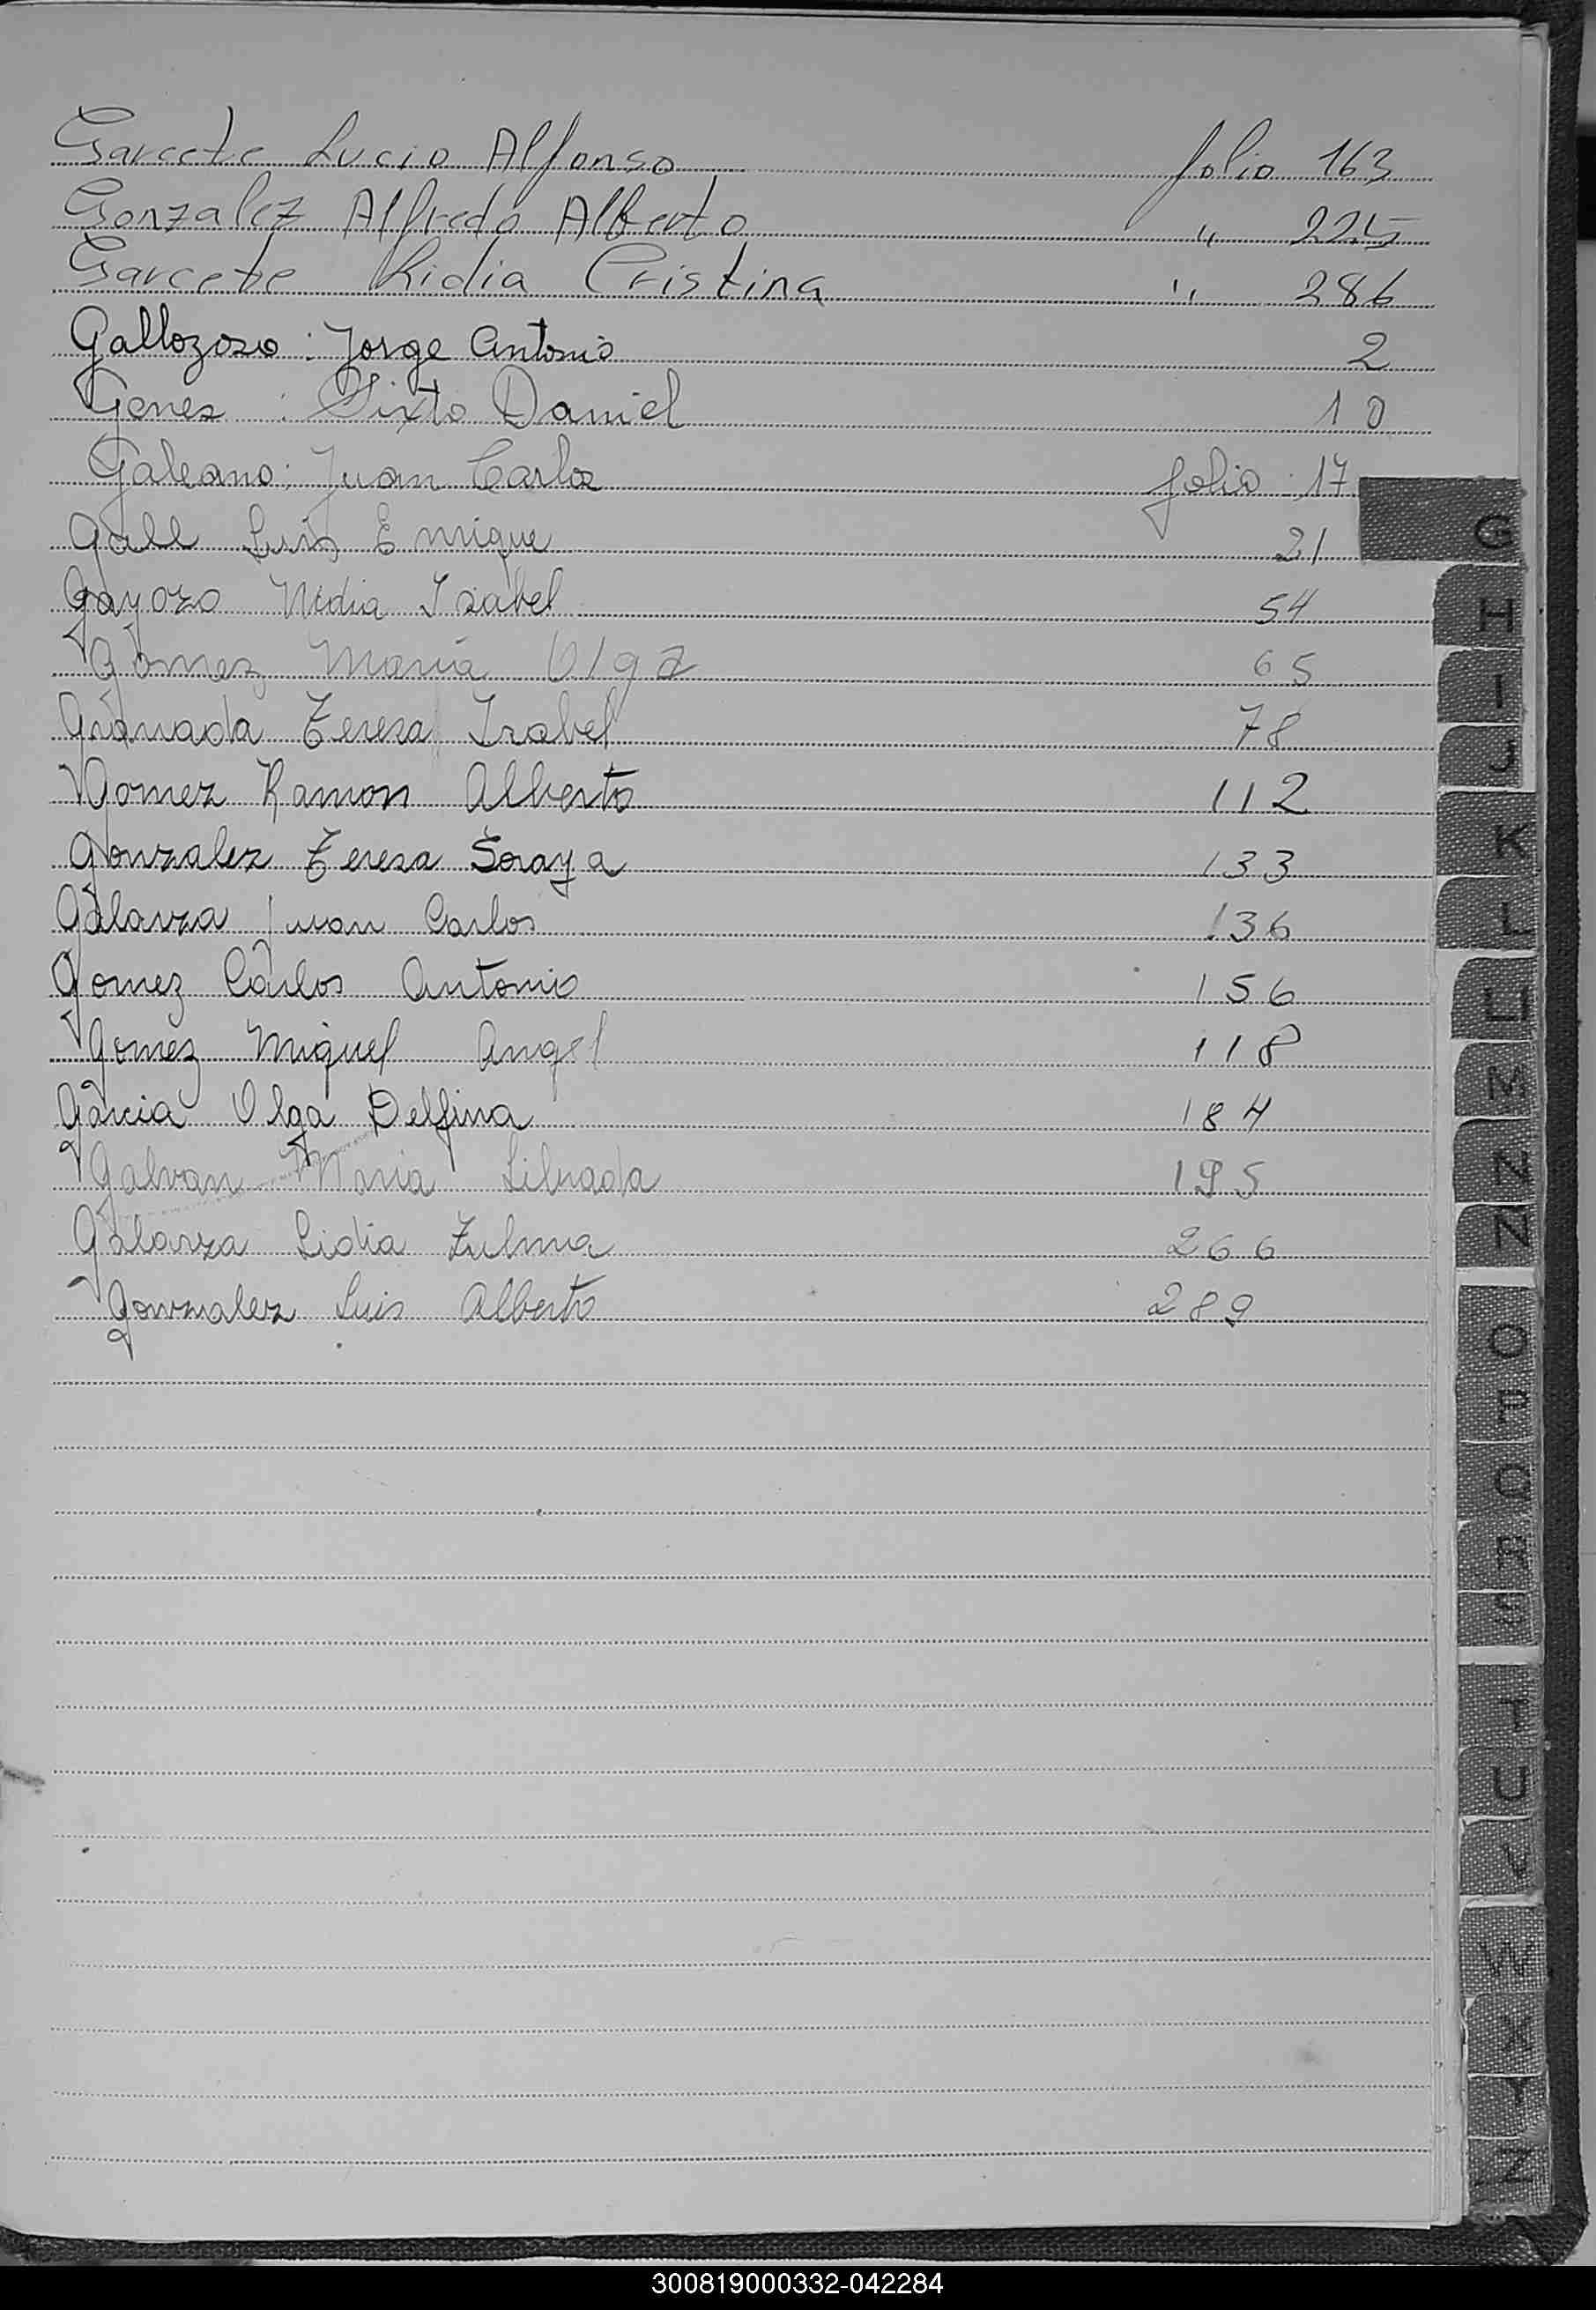 Garcete Lucio Alfonso folio 163
Gonzalez Alfredo Alberto " 225
Garcete Lidia Cristina " 286
Gallozoso : Jorge Antonio 2
Genes : Sixto Daniel 10
Galeano : Juan Carlos folio : 17
Gall Luis Enrique 21
Gayozo Nidia Isabel 54
Gomez Maria Olga 65
Granada Teresa Izabel 78
Gomez Ramon Alberto 112
Gonzalez Teresa Soraya 133
Galarza Juan Carlos 136
Gomez Carlos Antonio 156
Gomez Miguel Angel 118
Garcia Olga Delfina 184
Galvan Maria Librada 195
Galarza Lidia Zulma 266
Gonzalez Luis Alberto 289
G
H
I
J
K
L
LL
M
N
Ñ
O
P
Q
R
S
T
U
V
W
X
Y
Z
300819000332-042284